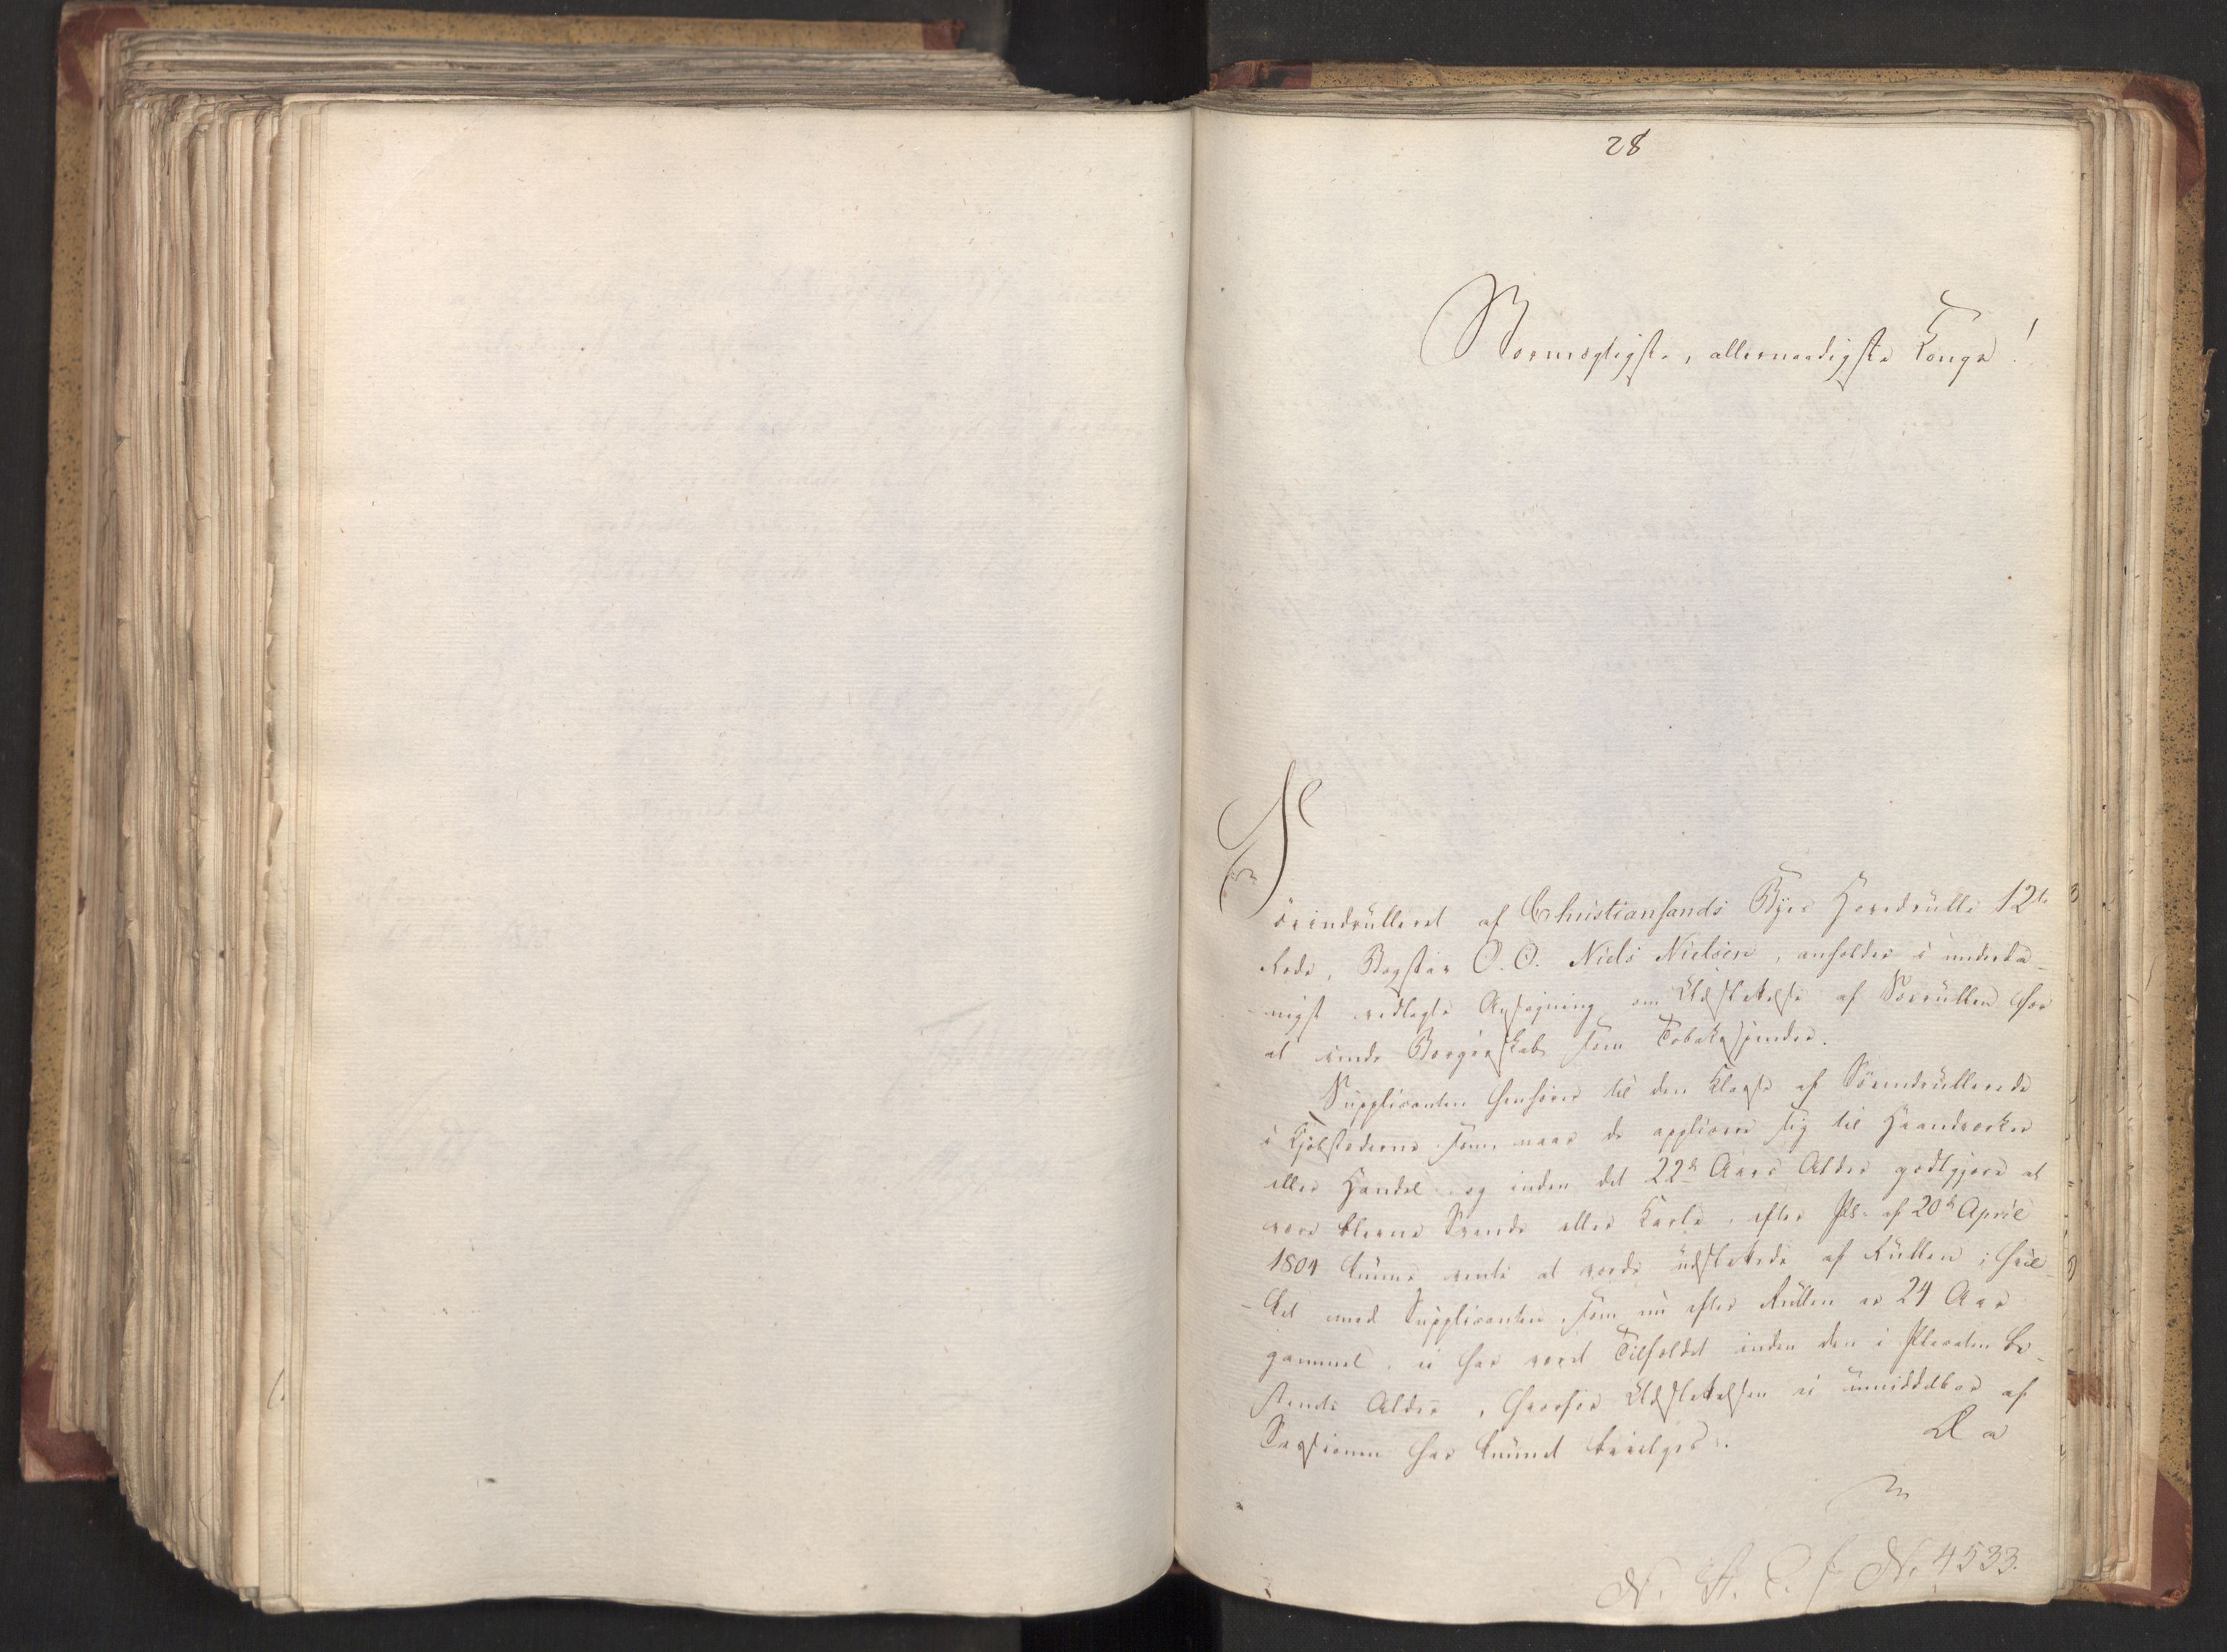 28
Stormægtigste, allernaadigste Konge!
Søeindrulleret af Christiansands Byes Hovedrulle 12te
Rode, Bogstav O. O. Niels Nielsen, anholder i underda-
nigst vedlagte Ansøgning om Udslettelse af Søerullen for
at vinde Borgerskab som Tobakspinder.
Supplicanten henhører til den Klasse af Søeindrullerede
i Kjøbstæderne som, naar de applicere sig til Haandværker
eller Handel og inden det 22de Aars Alder godtgjøre at
være blevne Svende eller Karle, efter Pl. af 20de April
1804 kunne vente at vorde udslettede af Rullen; hvil-
ket med Supplicanten, som nu efter Rullen er 24 Aar
gammel, ei har været Tilfældet inden den i Placaten be-
stemte Alder, hvorfor Udslettelsen ei umiddelbar af
Sessionen har kunnet bevilges.
Da
N. A. C. J. No 4533.